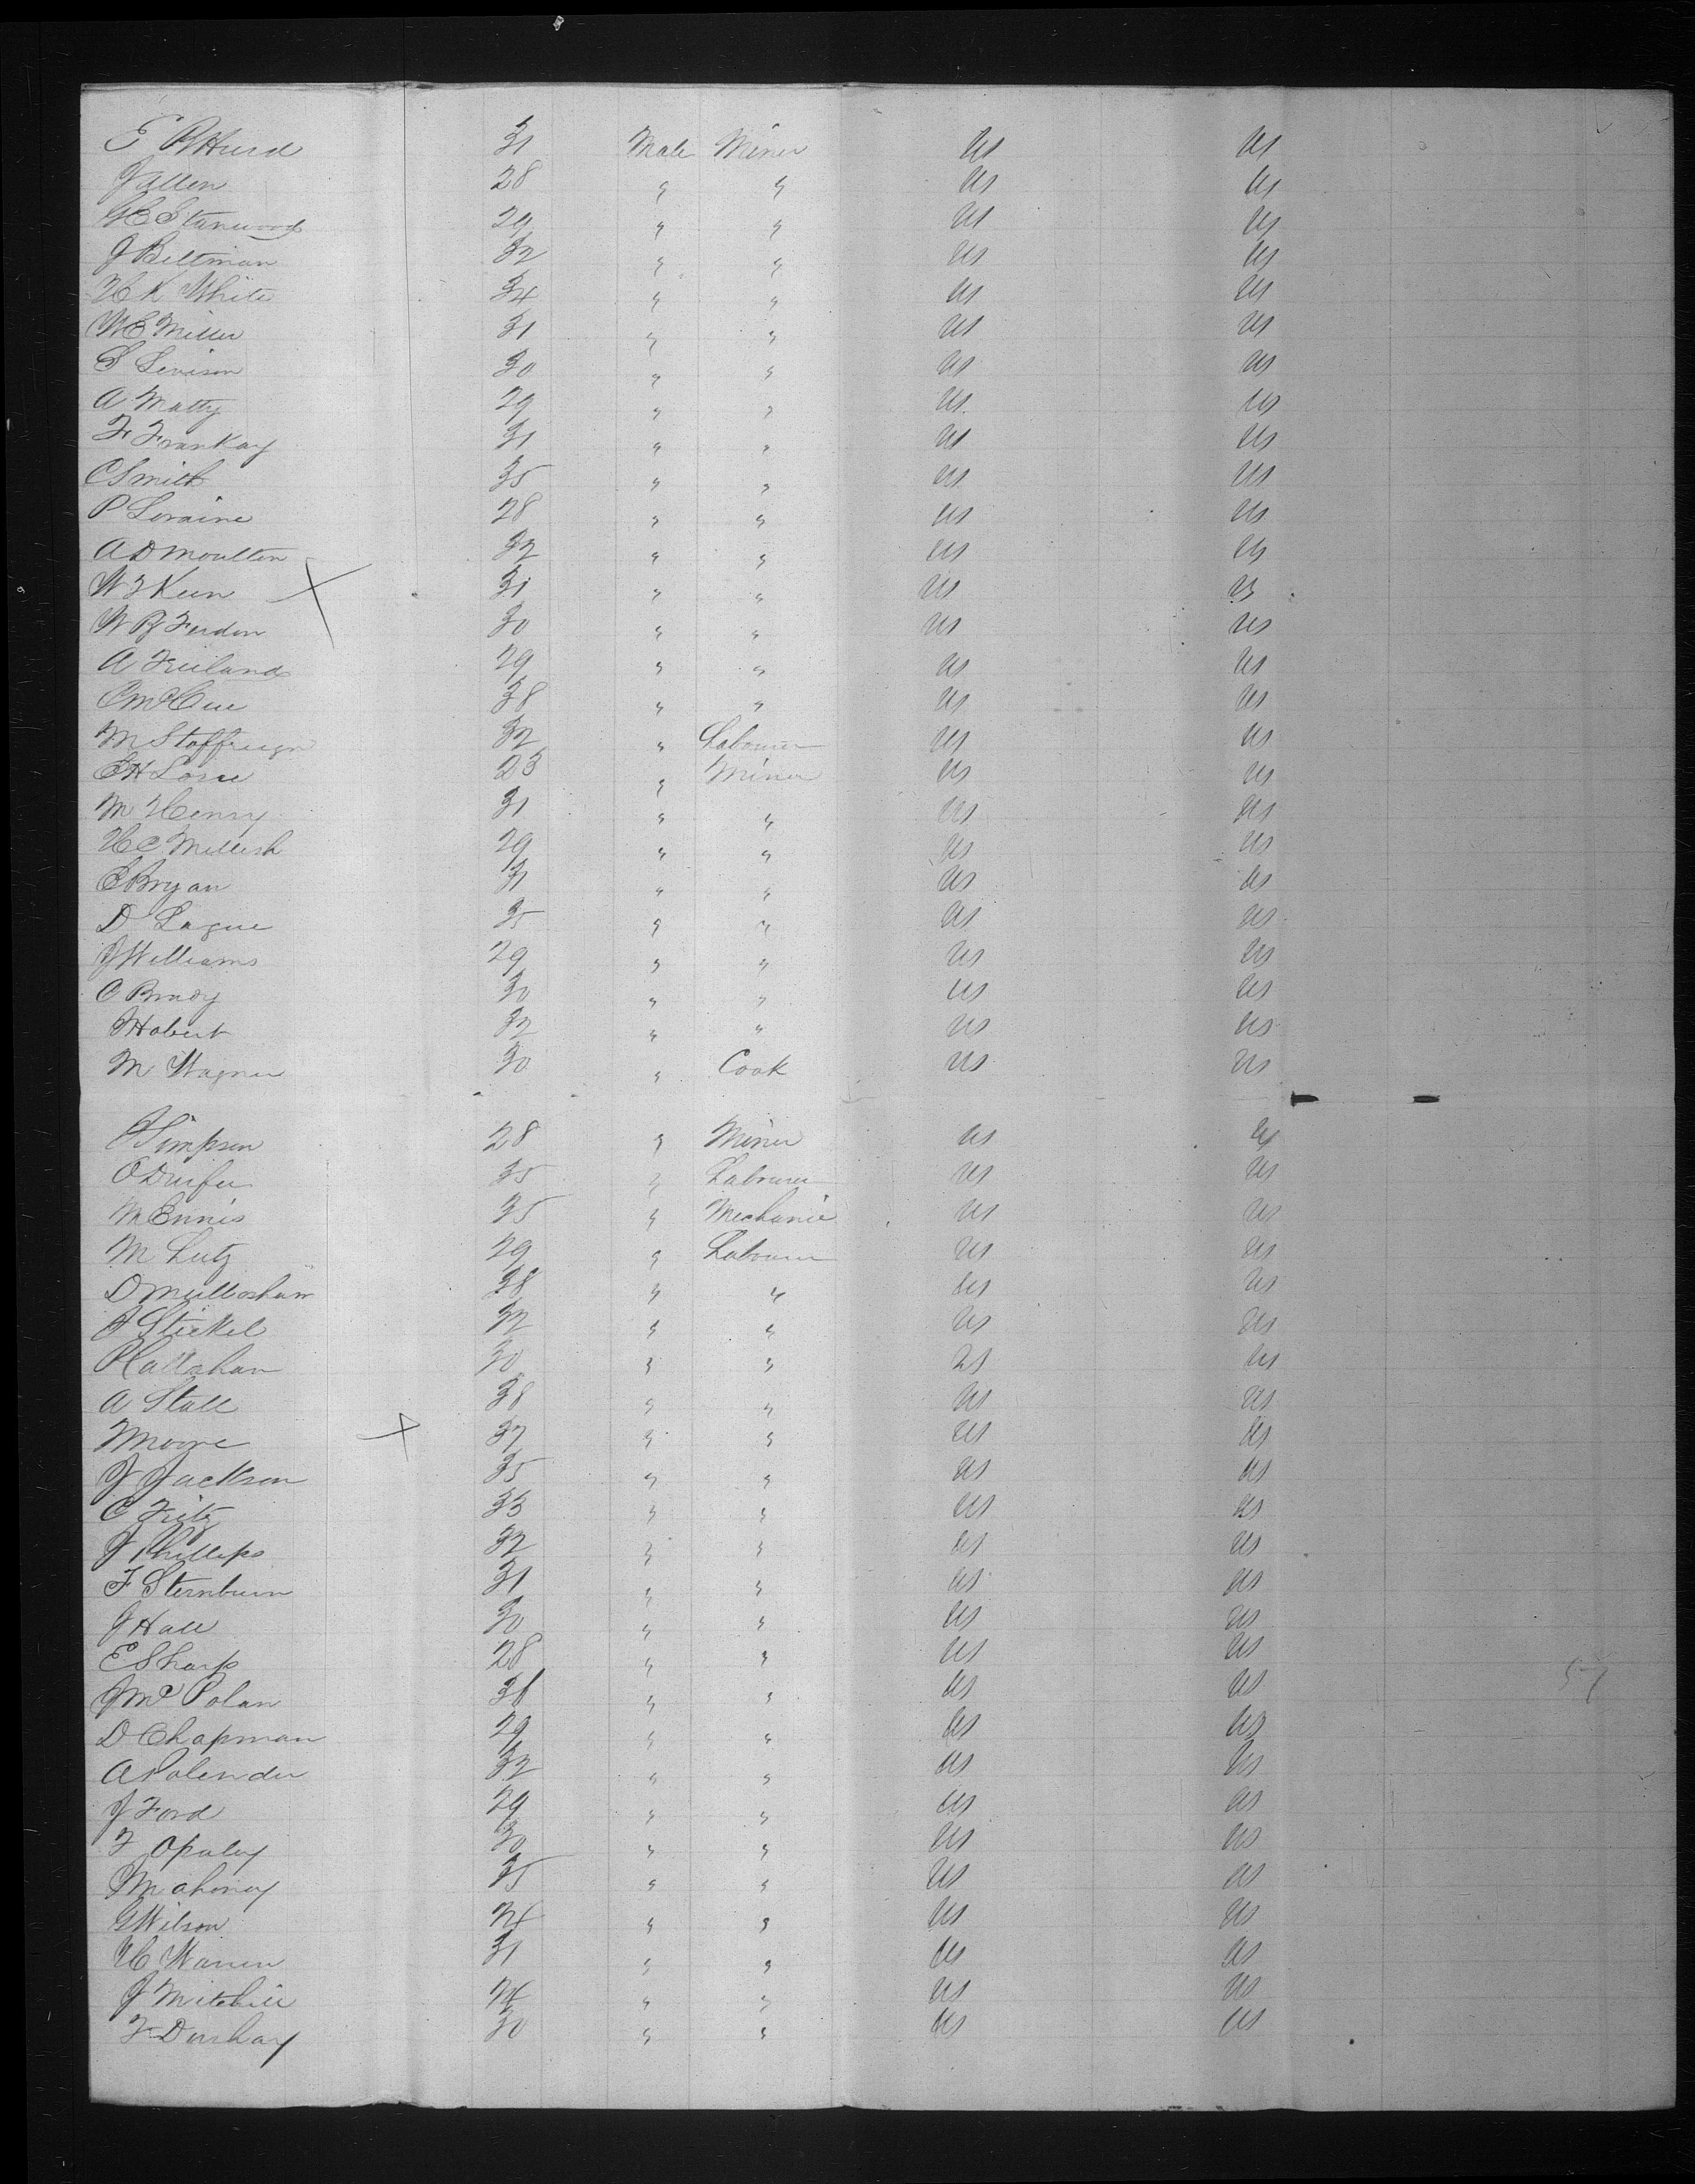 E B Hurd 31 Male Miner US US
J Allen 28 " " US US
H C Stanwood 29 " " US US
J Beltman 32 " " US US
H K White 34 " " US US
W E Miller 31 " " US US
S Levison 30 " " US US
A Matty 29 " " US US
F Frankay 31 " " US US
C Smith 35 " " US US
P Loraine 28 " " US US
A D Moulton 32 " " US US
W F Keen X 31 " " US US
W B Ferdon 30 " " US US
A Freeland 29 " " US US
C McCue 38 " " US US
M 32 " Labourer US US
E H 23 " Miner US US
M Henry 31 " " US US
H C Mellish 29 " " US US
E Bryan 31 " " US US
D Lague 35 " " US US
J Williams 29 " " US US
C Brady 30 " " US US
Hobert 32 " " US US
M Wagner 30 " Cook US US
A Simpson 28 " Miner US US
O Durfee 35 " Labourer US US
M Ennis 35 " Mechanic US US
M Lutz 29 " Labourer US US
D 38 " " US US
A Stickel 32 " " US US
P Callahan 30 " " US US
A Stall 38 " " US US
Moore X 37 " " US US
J Jackson 35 " " US US
C Fritz 33 " " US US
J Phillips 32 " " US US
F Sternburn 31 " " US US
J Hall 30 " " US US
E Sharp 28 " " US US
J McPolan " " US US
D Chapman 29 " " US US
A Polender 32 " " US US
J Ford 29 " " US US
F 30 " " US US
Mahoney 35 " " US US
G Wilson 24 " " US US
H C Warren 31 " " US US
J Mitchill 24 " " US US
F 30 " " US US